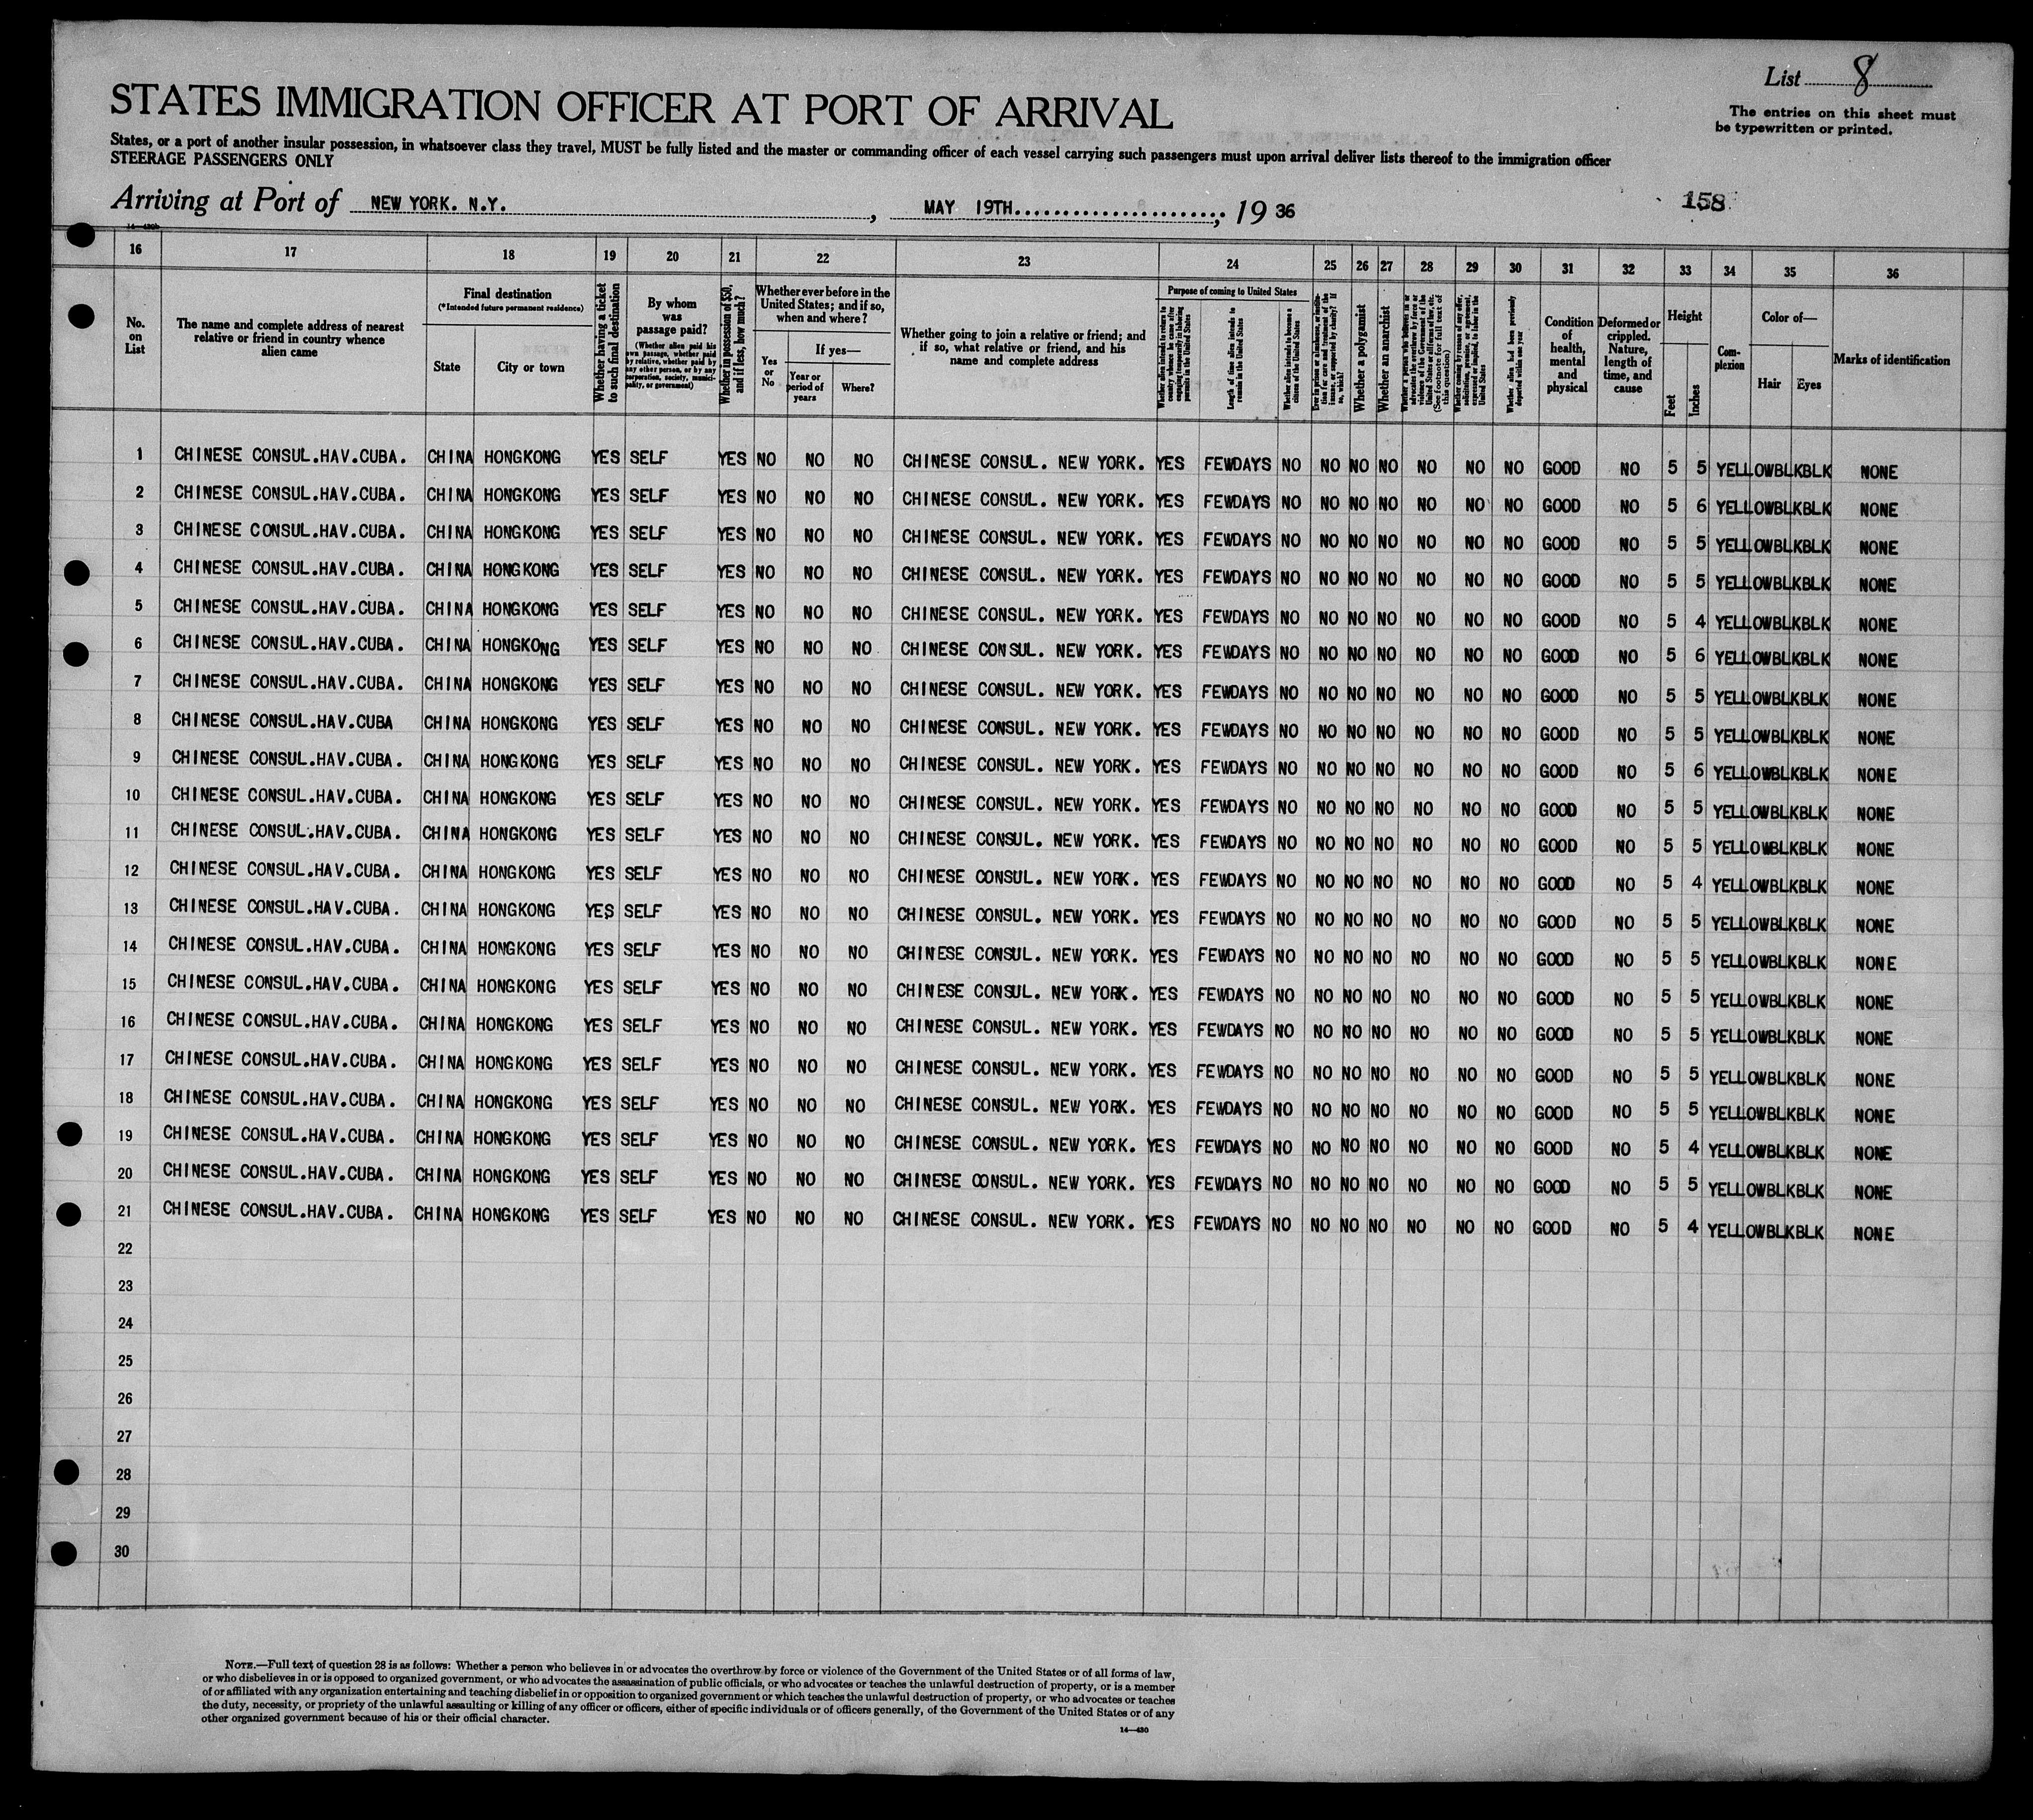 List 8
STATES IMMIGRATION OFFICER AT PORT OF ARRIVAL
The entries on this sheet must
be typewritten or printed.
States, or a port of another insular possession, in whatsoever class they travel, MUST be fully listed and the master or commanding officer of each vessel carrying such passengers must upon arrival deliver lists thereof to the immigration officer
STEERAGE PASSENGERS ONLY
Arriving at Port of NEW YORK. N.Y. , MAY 19TH......................, 19 36
158
16 17 18 19 20 21 22 23 24 25 26 27 28 29 30 31 32 33 34 35 36
No. on List
The name and complete address of nearest relative or friend in country whence alien came
Final destination (*Intended future permanent residence)
State City or town
Whether having a ticket to such final destination
By whom was passage paid? (Whether alien paid his own passage, whether paid by relative, whether paid by any other person, or by any corporation, society, municipality, or government)
Whether in possession of $50, and if less, how much?
Whether ever before in the United States; and if so, when and where?
Yes or No If yes— Year or period of years Where?
Whether going to join a relative or friend; and if so, what relative or friend, and his name and complete address
Purpose of coming to United States
Whether alien intends to return to country whence he came after engaging temporarily in laboring pursuits in the United States
Length of time alien intends to remain in the United States
Whether alien intends to become a citizen of the United States
Whether a polygamist
Whether an anarchist
Whether alien had been previously deported within one year
Condition of health, mental and physical
Deformed or crippled. Nature, length of time, and cause
Height Feet Inches
Complexion
Color of— Hair Eyes
Marks of identification
1 CHINESE CONSUL.HAV.CUBA. CHINA HONGKONG YES SELF YES NO NO NO CHINESE CONSUL. NEW YORK. YES FEWDAYS NO NO NO NO NO NO NO GOOD NO 5 5 YELLOWBLKBLK NONE
2 CHINESE CONSUL.HAV.CUBA. CHINA HONGKONG YES SELF YES NO NO NO CHINESE CONSUL. NEW YORK. YES FEWDAYS NO NO NO NO NO NO NO GOOD NO 5 6 YELLOWBLKBLK NONE
3 CHINESE CONSUL.HAV.CUBA. CHINA HONGKONG YES SELF YES NO NO NO CHINESE CONSUL. NEW YORK. YES FEWDAYS NO NO NO NO NO NO NO GOOD NO 5 5 YELLOWBLKBLK NONE
4 CHINESE CONSUL.HAV.CUBA. CHINA HONGKONG YES SELF YES NO NO NO CHINESE CONSUL. NEW YORK. YES FEWDAYS NO NO NO NO NO NO NO GOOD NO 5 5 YELLOWBLKBLK NONE
5 CHINESE CONSUL.HAV.CUBA. CHINA HONGKONG YES SELF YES NO NO NO CHINESE CONSUL. NEW YORK. YES FEWDAYS NO NO NO NO NO NO NO GOOD NO 5 4 YELLOWBLKBLK NONE
6 CHINESE CONSUL.HAV.CUBA. CHINA HONGKONG YES SELF YES NO NO NO CHINESE CONSUL. NEW YORK. YES FEWDAYS NO NO NO NO NO NO NO GOOD NO 5 6 YELLOWBLKBLK NONE
7 CHINESE CONSUL.HAV.CUBA. CHINA HONGKONG YES SELF YES NO NO NO CHINESE CONSUL. NEW YORK. YES FEWDAYS NO NO NO NO NO NO NO GOOD NO 5 5 YELLOWBLKBLK NONE
8 CHINESE CONSUL.HAV.CUBA CHINA HONGKONG YES SELF YES NO NO NO CHINESE CONSUL. NEW YORK. YES FEWDAYS NO NO NO NO NO NO NO GOOD NO 5 5 YELLOWBLKBLK NONE
9 CHINESE CONSUL.HAV.CUBA. CHINA HONGKONG YES SELF YES NO NO NO CHINESE CONSUL. NEW YORK. YES FEWDAYS NO NO NO NO NO NO NO GOOD NO 5 6 YELLOWBLKBLK NONE
10 CHINESE CONSUL.HAV.CUBA. CHINA HONGKONG YES SELF YES NO NO NO CHINESE CONSUL. NEW YORK. YES FEWDAYS NO NO NO NO NO NO NO GOOD NO 5 5 YELLOWBLKBLK NONE
11 CHINESE CONSUL.HAV.CUBA. CHINA HONGKONG YES SELF YES NO NO NO CHINESE CONSUL. NEW YORK. YES FEWDAYS NO NO NO NO NO NO NO GOOD NO 5 5 YELLOWBLKBLK NONE
12 CHINESE CONSUL.HAV.CUBA. CHINA HONGKONG YES SELF YES NO NO NO CHINESE CONSUL. NEW YORK. YES FEWDAYS NO NO NO NO NO NO NO GOOD NO 5 4 YELLOWBLKBLK NONE
13 CHINESE CONSUL.HAV.CUBA. CHINA HONGKONG YES SELF YES NO NO NO CHINESE CONSUL. NEW YORK. YES FEWDAYS NO NO NO NO NO NO NO GOOD NO 5 5 YELLOWBLKBLK NONE
14 CHINESE CONSUL.HAV.CUBA. CHINA HONGKONG YES SELF YES NO NO NO CHINESE CONSUL. NEW YORK. YES FEWDAYS NO NO NO NO NO NO NO GOOD NO 5 5 YELLOWBLKBLK NONE
15 CHINESE CONSUL.HAV.CUBA. CHINA HONGKONG YES SELF YES NO NO NO CHINESE CONSUL. NEW YORK. YES FEWDAYS NO NO NO NO NO NO NO GOOD NO 5 5 YELLOWBLKBLK NONE
16 CHINESE CONSUL.HAV.CUBA. CHINA HONGKONG YES SELF YES NO NO NO CHINESE CONSUL. NEW YORK. YES FEWDAYS NO NO NO NO NO NO NO GOOD NO 5 5 YELLOWBLKBLK NONE
17 CHINESE CONSUL.HAV.CUBA. CHINA HONGKONG YES SELF YES NO NO NO CHINESE CONSUL. NEW YORK. YES FEWDAYS NO NO NO NO NO NO NO GOOD NO 5 5 YELLOWBLKBLK NONE
18 CHINESE CONSUL.HAV.CUBA. CHINA HONGKONG YES SELF YES NO NO NO CHINESE CONSUL. NEW YORK. YES FEWDAYS NO NO NO NO NO NO NO GOOD NO 5 5 YELLOWBLKBLK NONE
19 CHINESE CONSUL.HAV.CUBA. CHINA HONGKONG YES SELF YES NO NO NO CHINESE CONSUL. NEW YORK. YES FEWDAYS NO NO NO NO NO NO NO GOOD NO 5 4 YELLOWBLKBLK NONE
20 CHINESE CONSUL.HAV.CUBA. CHINA HONGKONG YES SELF YES NO NO NO CHINESE CONSUL. NEW YORK. YES FEWDAYS NO NO NO NO NO NO NO GOOD NO 5 5 YELLOWBLKBLK NONE
21 CHINESE CONSUL.HAV.CUBA. CHINA HONGKONG YES SELF YES NO NO NO CHINESE CONSUL. NEW YORK. YES FEWDAYS NO NO NO NO NO NO NO GOOD NO 5 4 YELLOWBLKBLK NONE
22
23
24
25
26
27
28
29
30
NOTE.—Full text of question 28 is as follows: Whether a person who believes in or advocates the overthrow by force or violence of the Government of the United States or of all forms of law,
or who disbelieves in or is opposed to organized government, or who advocates the assassination of public officials, or who advocates or teaches the unlawful destruction of property, or is a member
of or affiliated with any organization entertaining and teaching disbelief in or opposition to organized government or which teaches the unlawful destruction of property, or who advocates or teaches
the duty, necessity, or propriety of the unlawful assaulting or killing of any officer or officers, either of specific individuals or of officers generally, of the Government of the United States or of any
other organized government because of his or their official character.
14—430